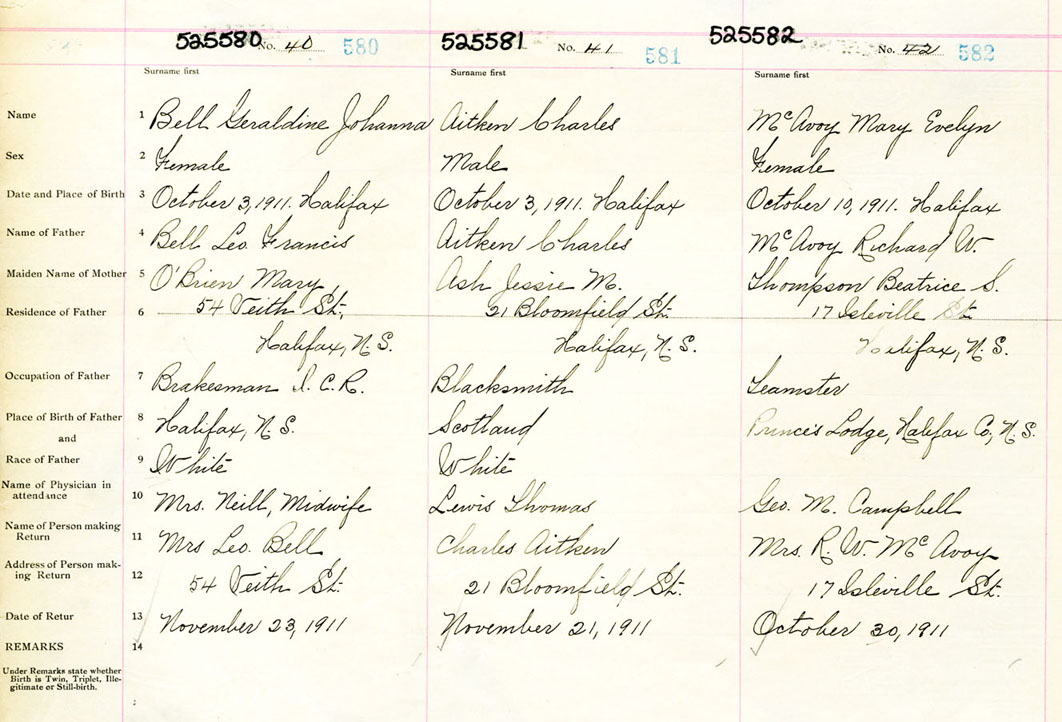 525580 No. 40 580 525581 No. 41 581 525582 No. 42 582
Surname first Surname first Surname first
Name 1 Bell Geraldine Johanna Aitken Charles McAvoy Mary Evelyn
Sex 2 Female Male Female
Date and Place of Birth 3 October 3, 1911. Halifax October 3, 1911. Halifax October 10, 1911. Halifax
Name of Father 4 Bell Leo Francis Aitken Charles McAvoy Richard W.
Maiden Name of Mother 5 O'Brien Mary Ash Jessie M. Thompson Beatrice S.
Residence of Father 6 54 Veith St. 21 Bloomfield St. 17 Isleville St.
Halifax, N.S. Halifax, N.S. Halifax, N.S.
Occupation of Father 7 Brakesman I.C.R. Blacksmith Teamster
Place of Birth of Father 8 Halifax, N.S. Scotland Princes Lodge, Halifax Co, N.S.
and
Race of Father 9 White White
Name of Physician in
attendance 10 Mrs. Neill, Midwife Lewis Thomas Geo. M. Campbell
Name of Person making
Return 11 Mrs Leo. Bell Charles Aitken Mrs. R. W. McAvoy
Address of Person mak-
ing Return 12 54 Veith St. 21 Bloomfield St. 17 Isleville St.
Date of Retur 13 November 23, 1911 November 21, 1911 October 30, 1911
REMARKS 14
Under Remarks state whether
Birth is Twin, Triplet, Ille-
gitimate or Still-birth.